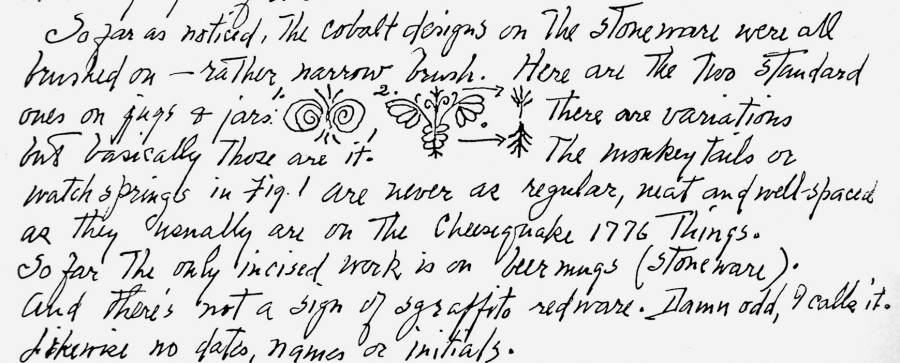 So far as noticed, the cobalt designs on the stoneware were all
brushed on — rather narrow brush. Here are the two standard
ones on jugs & jars: 1. 2. There are variations
but basically those are it. The monkey tails or
watch springs in Fig. 1 are never as regular, neat and well-spaced
as they usually are on the Cheesequake 1776 things.
So far the only incised work is on beer mugs (stoneware).
And there's not a sign of sgraffito redware. Damn odd, I calls it.
Likewise no dates, names or initials.